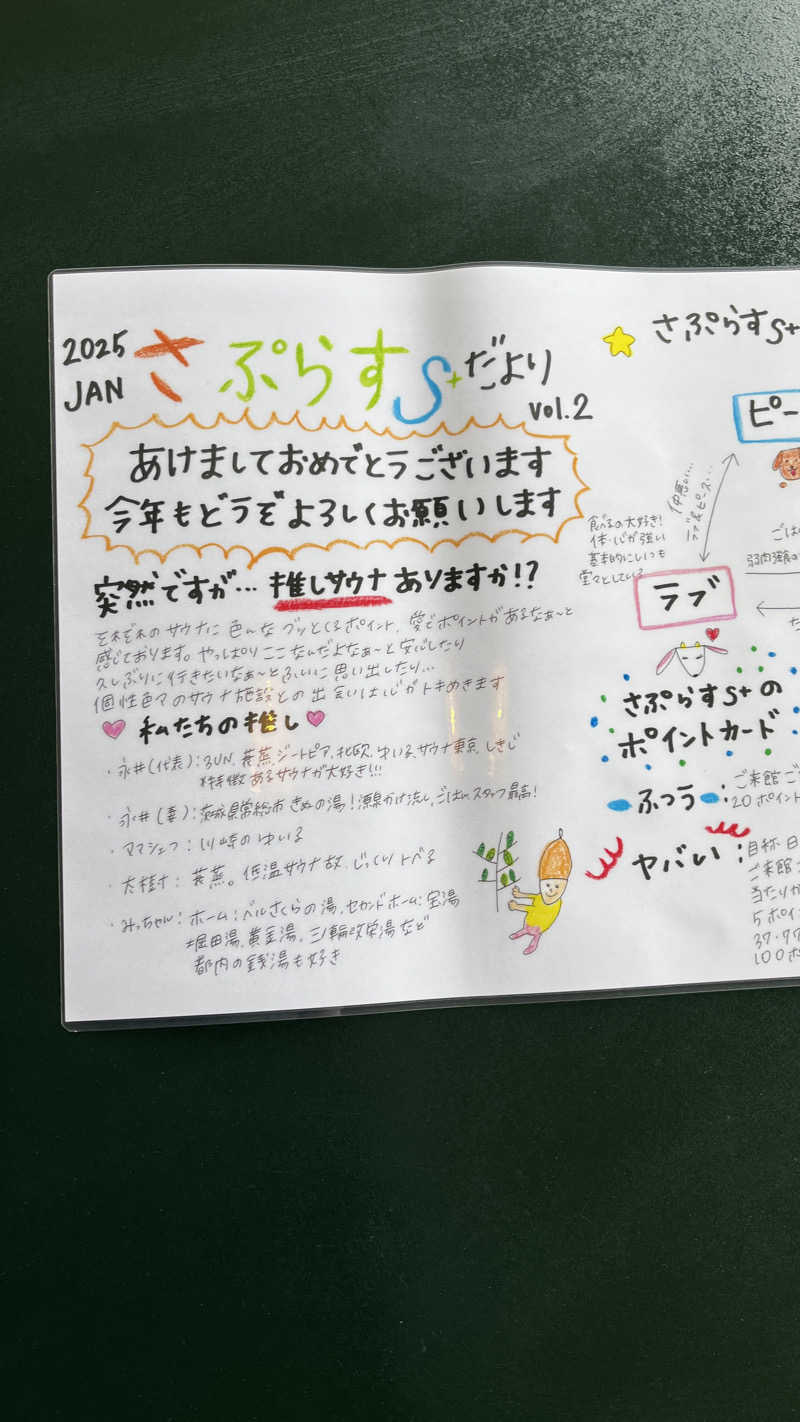 2025
JAN
さぷらすS+だより
vol.2
あけましておめでとうございます
今年もどうぞよろしくお願いします
突然ですが… 推しサウナ ありますか!?
それぞれのサウナに 色んな グッとくるポイント、愛でポイントがあるなぁ〜と
感じております。やっぱりここなんだよなぁ〜と安心したり
久しぶりに行きたいなぁ〜とふいに思い出したり…
個性色々のサウナ施設との出会いは心がトキめきます
私たちの推し
・永井(代表): SUN、 ジートピア、北欧、ゆいる、サウナ東京、しきじ
特徴あるサウナが大好き!!!
・永井(妻): 茨城県常総市 きぬの湯! 源泉かけ流し、ごはん、スタッフ最高!
・ママシェフ: 川崎のゆいる
・大樹: 低温サウナ故、じっくりトべる
・みっちゃん: ホーム: ベルさくらの湯、セカンドホーム: 宝湯
堀田湯、黄金湯、三輪改栄湯など
都内の銭湯も好き
さぷらすS+
ピー
仲良し…
ラブ&ピース…
食べるの大好き!
体・心が強い
基本的にいつも
堂々としている
ごは
弱肉強食の
ラブ
た
さぷらすS+の
ポイントカード
ふつう: ご来館ご
20ポイント
ヤバい: 自称・日
ご来館
当たりが
5ポイン
37・
100ポ